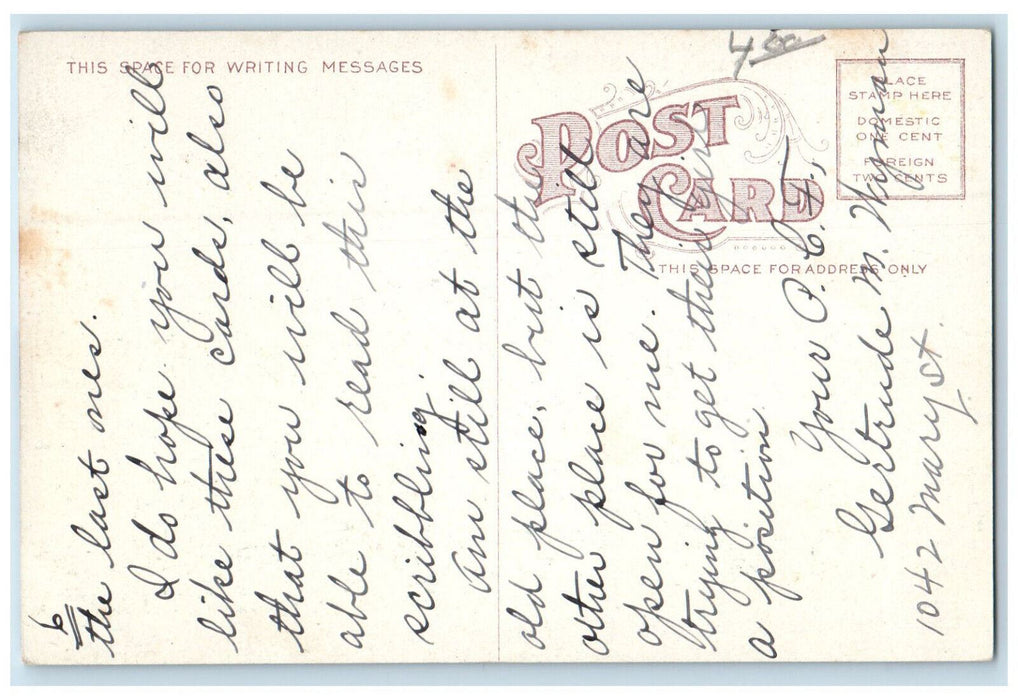 THIS SPACE FOR WRITING MESSAGES
POST
CARD
THIS SPACE FOR ADDRESS ONLY
PLACE
STAMP HERE
DOMESTIC
ONE CENT
FOREIGN
TWO CENTS
6
the last ones.
I do hope you will
like these cards, also
that you will be
able to read this
scribbling
Am still at the
old place, but the
other place is still
open for me. They are
trying to get their girl
a position
Your P. C. F.,
Gertrude M. Wyman
1042 Mary St.